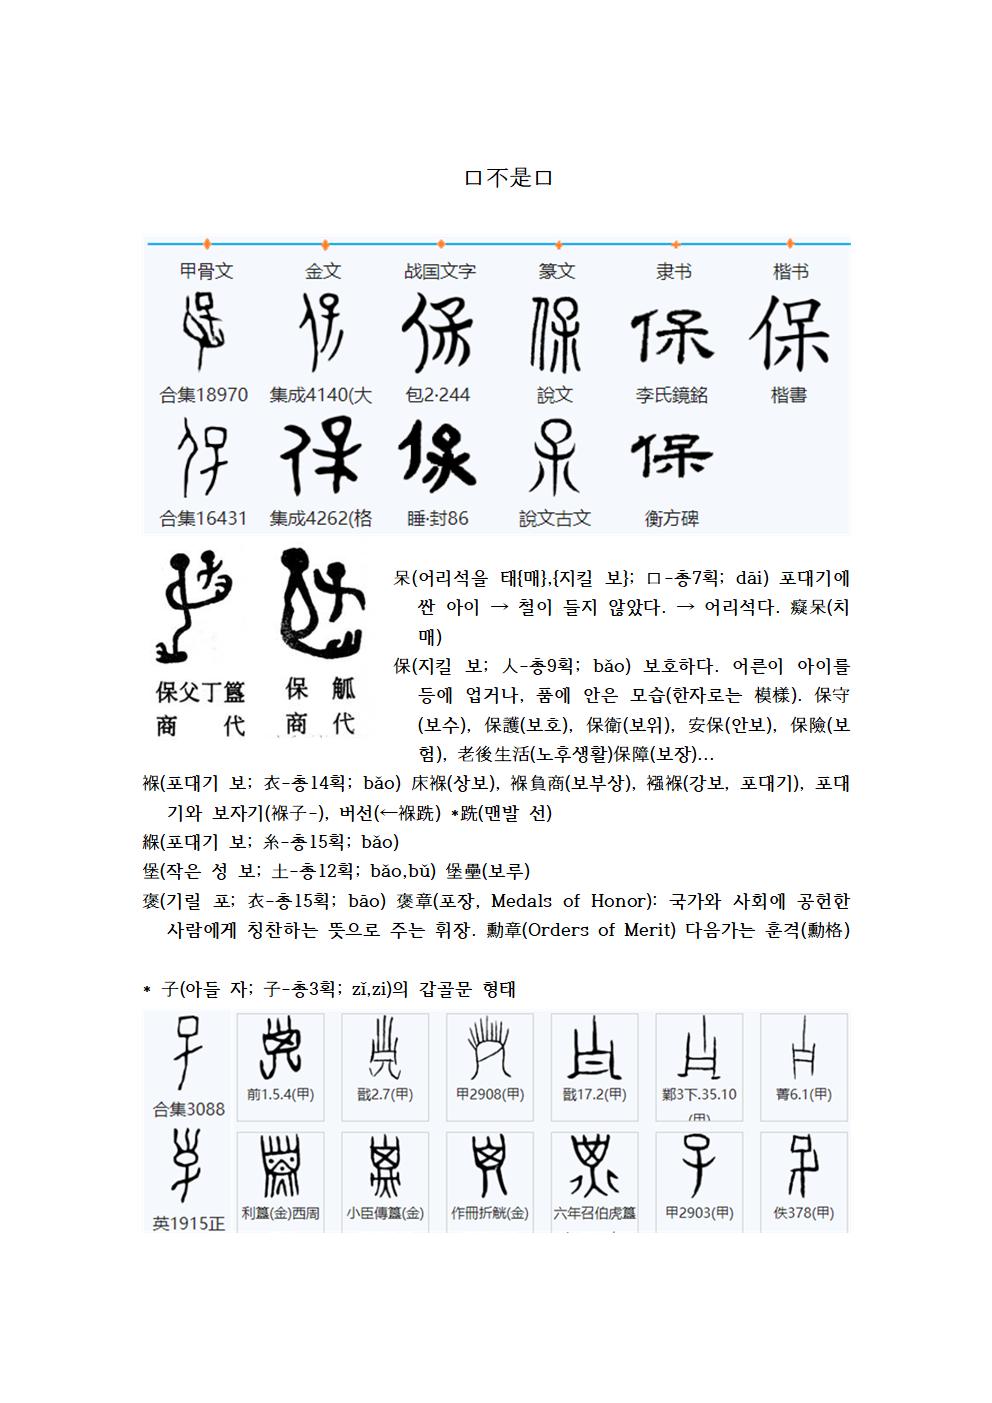 口不是口
甲骨文 金文 战国文字 篆文 隶书 楷书
保
合集18970 集成4140(大 包2·244 說文 李氏鏡銘 楷書
合集16431 集成4262(格 睡·封86 說文古文 衡方碑
呆(어리석을 태{매},{지킬 보}; 口-총7획; dāi) 포대기에
싼 아이 → 철이 들지 않았다. → 어리석다. 癡呆(치
매)
保(지킬 보; 人-총9획; bǎo) 보호하다. 어른이 아이를
등에 업거나, 품에 안은 모습(한자로는 模樣). 保守
(보수), 保護(보호), 保衛(보위), 安保(안보), 保險(보
험), 老後生活(노후생활)保障(보장)…
保父丁簋 保 觚
商 代 商 代
褓(포대기 보; 衣-총14획; bǎo) 床褓(상보), 褓負商(보부상), 襁褓(강보, 포대기), 포대
기와 보자기(褓子-), 버선(←褓跣) *跣(맨발 선)
緥(포대기 보; 糸-총15획; bǎo)
堡(작은 성 보; 土-총12획; bǎo,bǔ) 堡壘(보루)
褒(기릴 포; 衣-총15획; bāo) 褒章(포장, Medals of Honor): 국가와 사회에 공헌한
사람에게 칭찬하는 뜻으로 주는 휘장. 勳章(Orders of Merit) 다음가는 훈격(勳格)
* 子(아들 자; 子-총3획; zǐ,zi)의 갑골문 형태
合集3088 前1.5.4(甲) 戩2.7(甲) 甲2908(甲) 戩17.2(甲) 鄴3下.35.10 菁6.1(甲)
(甲)
英1915正 利簋(金)西周 小臣傳簋(金) 作冊折觥(金) 六年召伯虎簋 甲2903(甲) 佚378(甲)